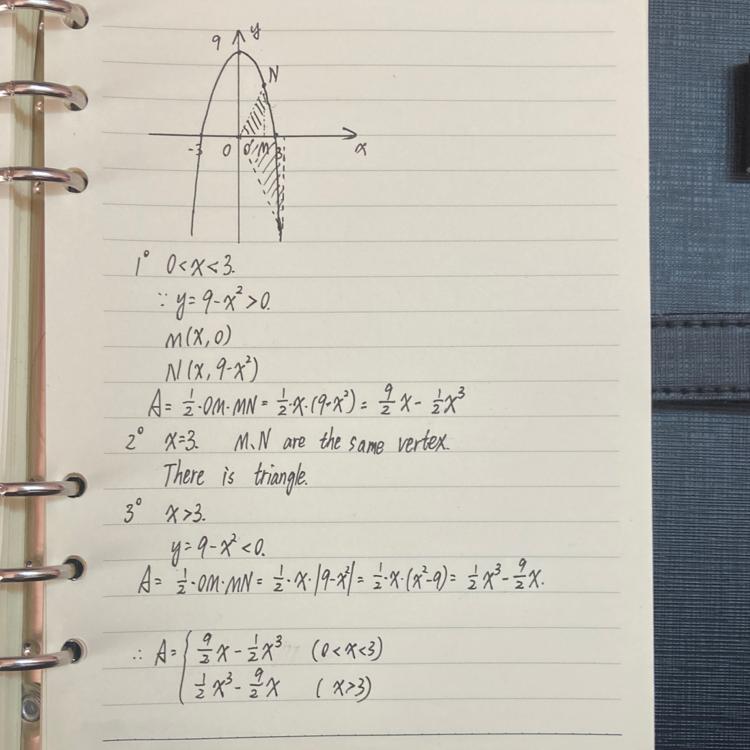 9 y
N
-3 0 M 3 x
1° 0<x<3.
∵ y=9-x²>0.
M(x,0)
N(x,9-x²)
A= 1/2·OM·MN= 1/2·x·(9-x²)= 9/2x- 1/2x³
2° x=3. M.N are the same vertex.
There is triangle.
3° x>3.
y=9-x²<0.
A= 1/2·OM·MN= 1/2·x·|9-x²|= 1/2·x·(x²-9)= 1/2x³- 9/2x.
∴ A= { 9/2x- 1/2x³ (0<x<3)
1/2x³- 9/2x (x>3)